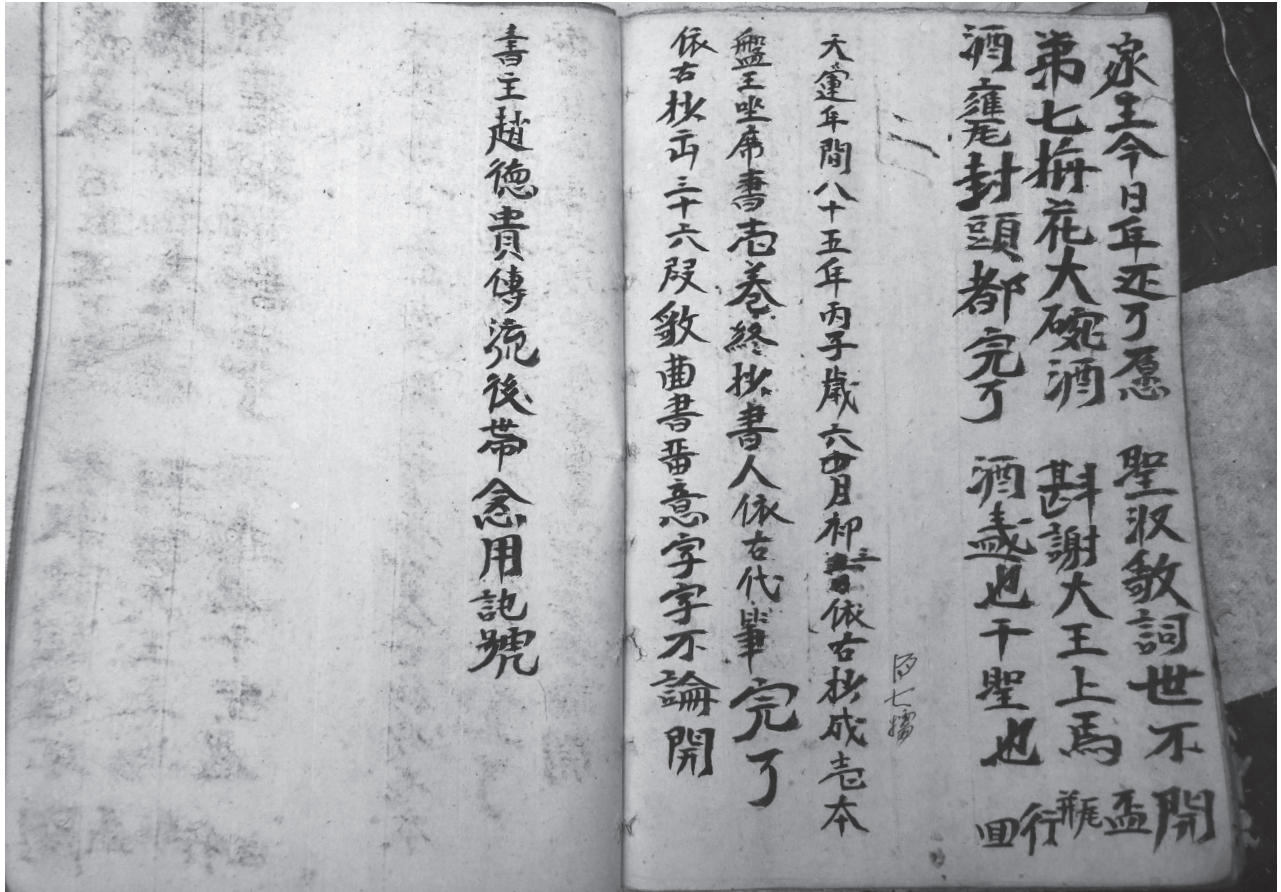 泉王今日年还了愿 聖汝敨詞世不開
弟七撫花大碗酒 斟謝大王上馬盃
酒甕封頭都完了 酒盞也干聖也回
天運年間八十五年丙子歲六月初三依古抄成壱本
盤王坐席書壱卷終抄書人依古代筆完了
依古抄出三十六段敨曲書番意字字不論開
書主趙德貴傳流後帶念用訖號